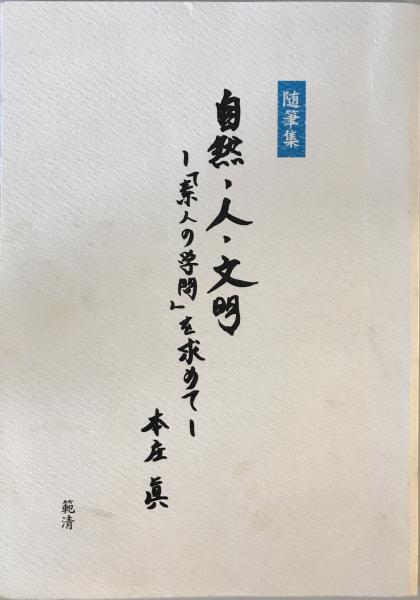 随筆集
自然、人、文明
ー「素人の学問」を求めてー
本庄眞
範清